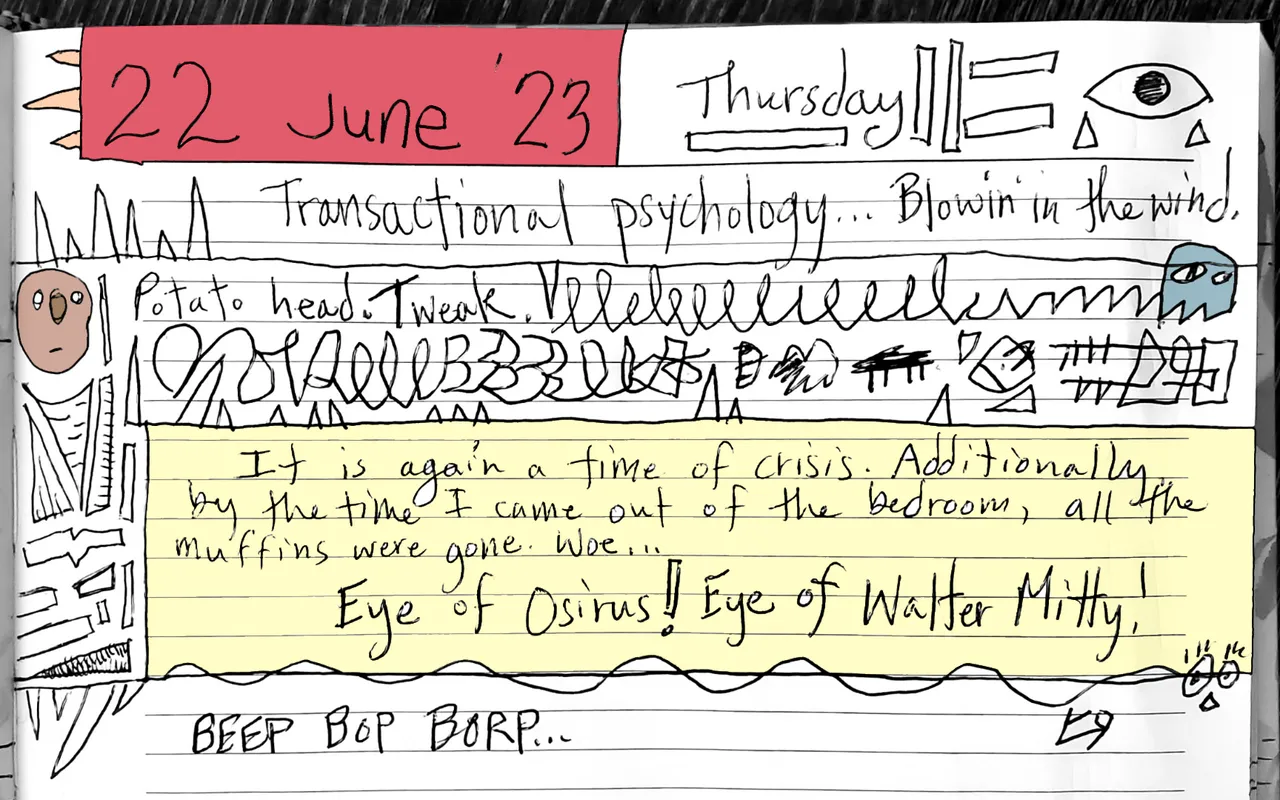 22 June '23
Thursday
Transactional psychology... Blowin' in the wind.
Potato head. Tweak.
It is again a time of crisis. Additionally,
by the time I came out of the bedroom, all the
muffins were gone. Woe...
Eye of Osirus! Eye of Walter Mitty!
BEEP BOP BORP...